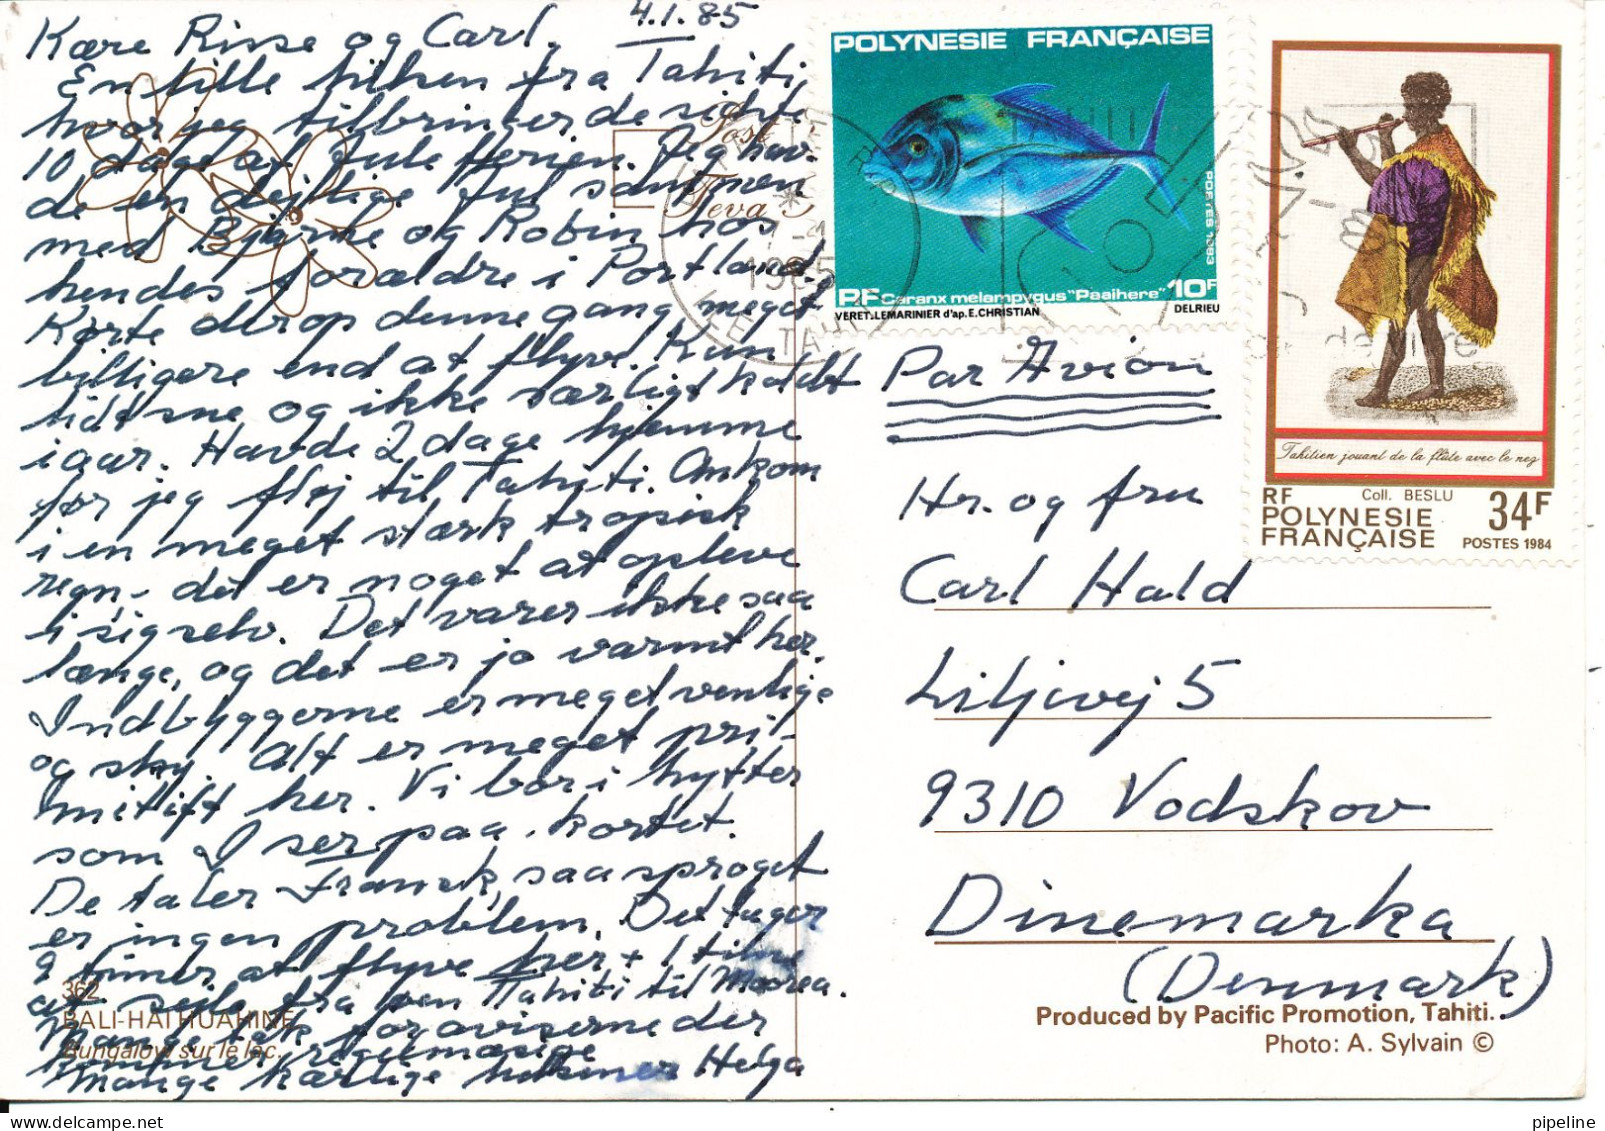 4.1.85
Kære Risse og Carl.
En lille hilsen fra Tahiti,
hvor jeg tilbringer de sidste
10 dage af Juleferien. Jeg hav-
de en dejlig Jul sammen
med Bjarne og Robin hos
hendes forældre i Portland.
Kørte derop denne gang meget
billigere end at flyve. Kun
lidt sne og ikke særligt koldt
i aar. Havde 2 dage hjemme
før jeg fløj til Tahiti. Ankom
i en meget stærk tropisk
regn - det er noget at opleve
i sig selv. Det varer ikke saa
længe, og det er jo varmt her.
Indbyggerne er meget venlige
og sky. Alt er meget pri-
mitivt her. Vi bor i hytter
som I ser paa kortet.
De taler Fransk, saa sproget
er ingen problem. Det tager
9 timer at flyve her + 1 time
at sejle fra Tahiti til Moorea.
Mange tak for aviserne der
kommer regelmæssigt
Mange kærlige hilsner Helga
362
BALI-HAI HUAHINE
Bungalow sur le lac.
POLYNESIE FRANÇAISE
POSTES 1983
RF Caranx melampygus "Paaihere" 10F
VERET-LEMARINIER d'ap. E. CHRISTIAN DELRIEU
1985
Tahitien jouant de la flûte avec le nez
RF Coll. BESLU 34F
POLYNESIE
FRANÇAISE POSTES 1984
Par Avion
Hr. og fru
Carl Hald
Liljevej 5
9310 Vodskov
Dinemarka
(Denmark)
Produced by Pacific Promotion, Tahiti.
Photo: A. Sylvain ©
pipeline